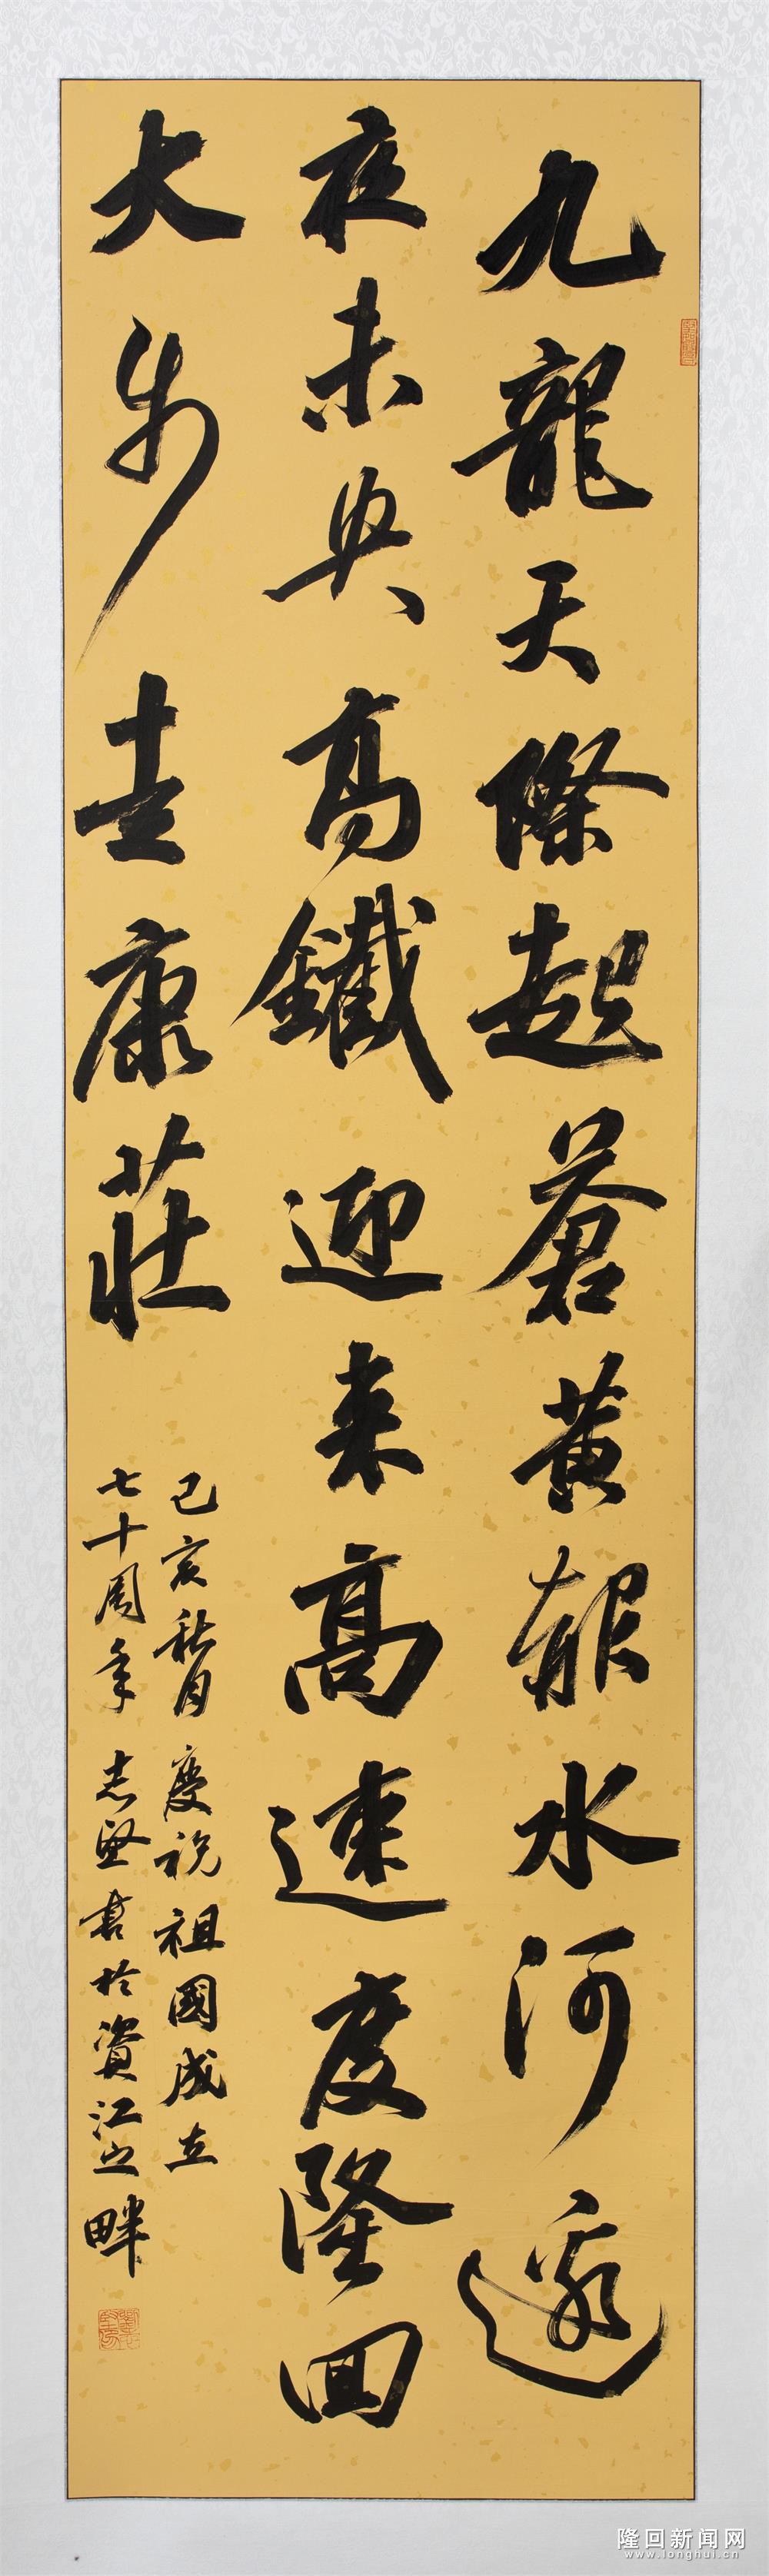 九龍天際起蒼黃赧水河邊
夜未央高鐵迎来高速度隆回
大步走康莊
己亥秋月慶祝祖國成立
七十周年志堅書於資江之畔
隆回新闻网
www.longhui.cn